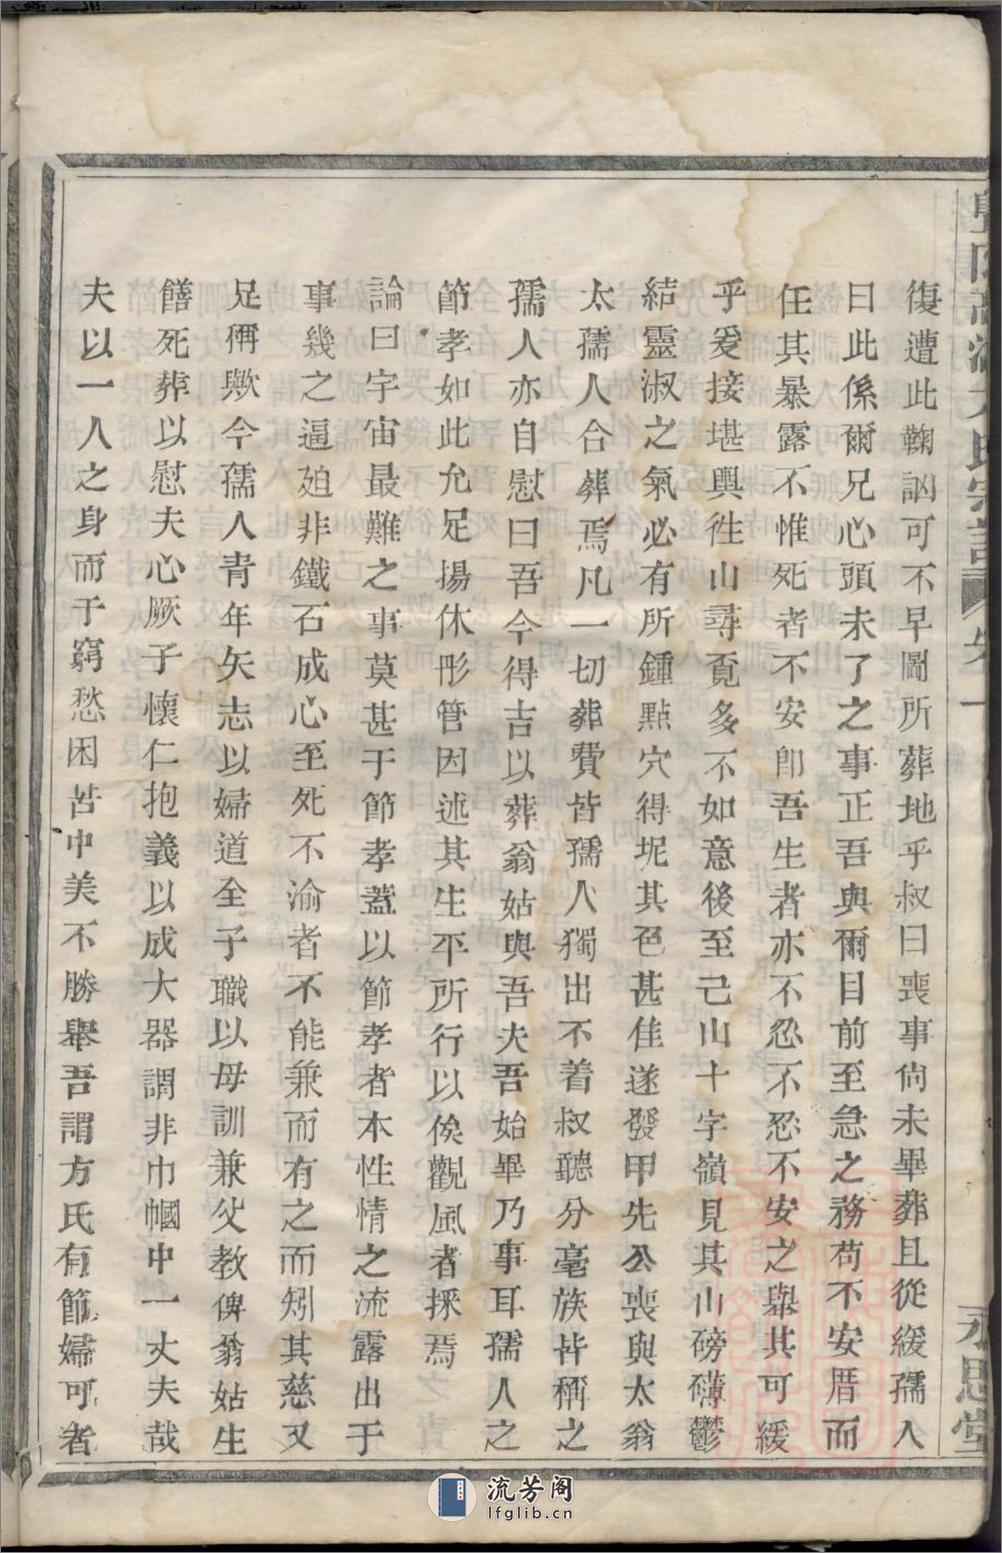 復遭此鞠訩可不早圖所葬地乎叔曰喪事尙未畢葬且從緩孺人
曰此係爾兄心頭未了之事正吾與爾目前至急之務苟不安厝而
任其暴露不惟死者不安卽吾生者亦不忍不忍不安之舉其可緩
乎爰接堪輿徃山尋覔多不如意後至己山十字嶺見其山磅礴鬱
結靈淑之氣必有所鍾點穴得坭其色甚佳遂發甲先公喪與太翁
太孺人合葬焉凡一切葬費皆孺人獨出不着叔聽分毫族皆稱之
孺人亦自慰曰吾今得吉以葬翁姑與吾夫吾始畢乃事耳孺人之
節孝如此允足揚休彤管因述其生平所行以俟觀風者採焉
論曰宇宙最難之事莫甚于節孝蓋以節孝者本性情之流露出于
事幾之逼廹非鐵石成心至死不渝者不能兼而有之而矧其慈又
足稱歟今孺人青年矢志以婦道全子職以母訓兼父教俾翁姑生
饍死葬以慰夫心厥子懷仁抱義以成大器謂非巾幗中一丈夫哉
夫以一人之身而于窮愁困苦中美不勝舉吾謂方氏有節婦可者
氏宗譜
卷一
永思堂
流芳阁
lfglib.cn